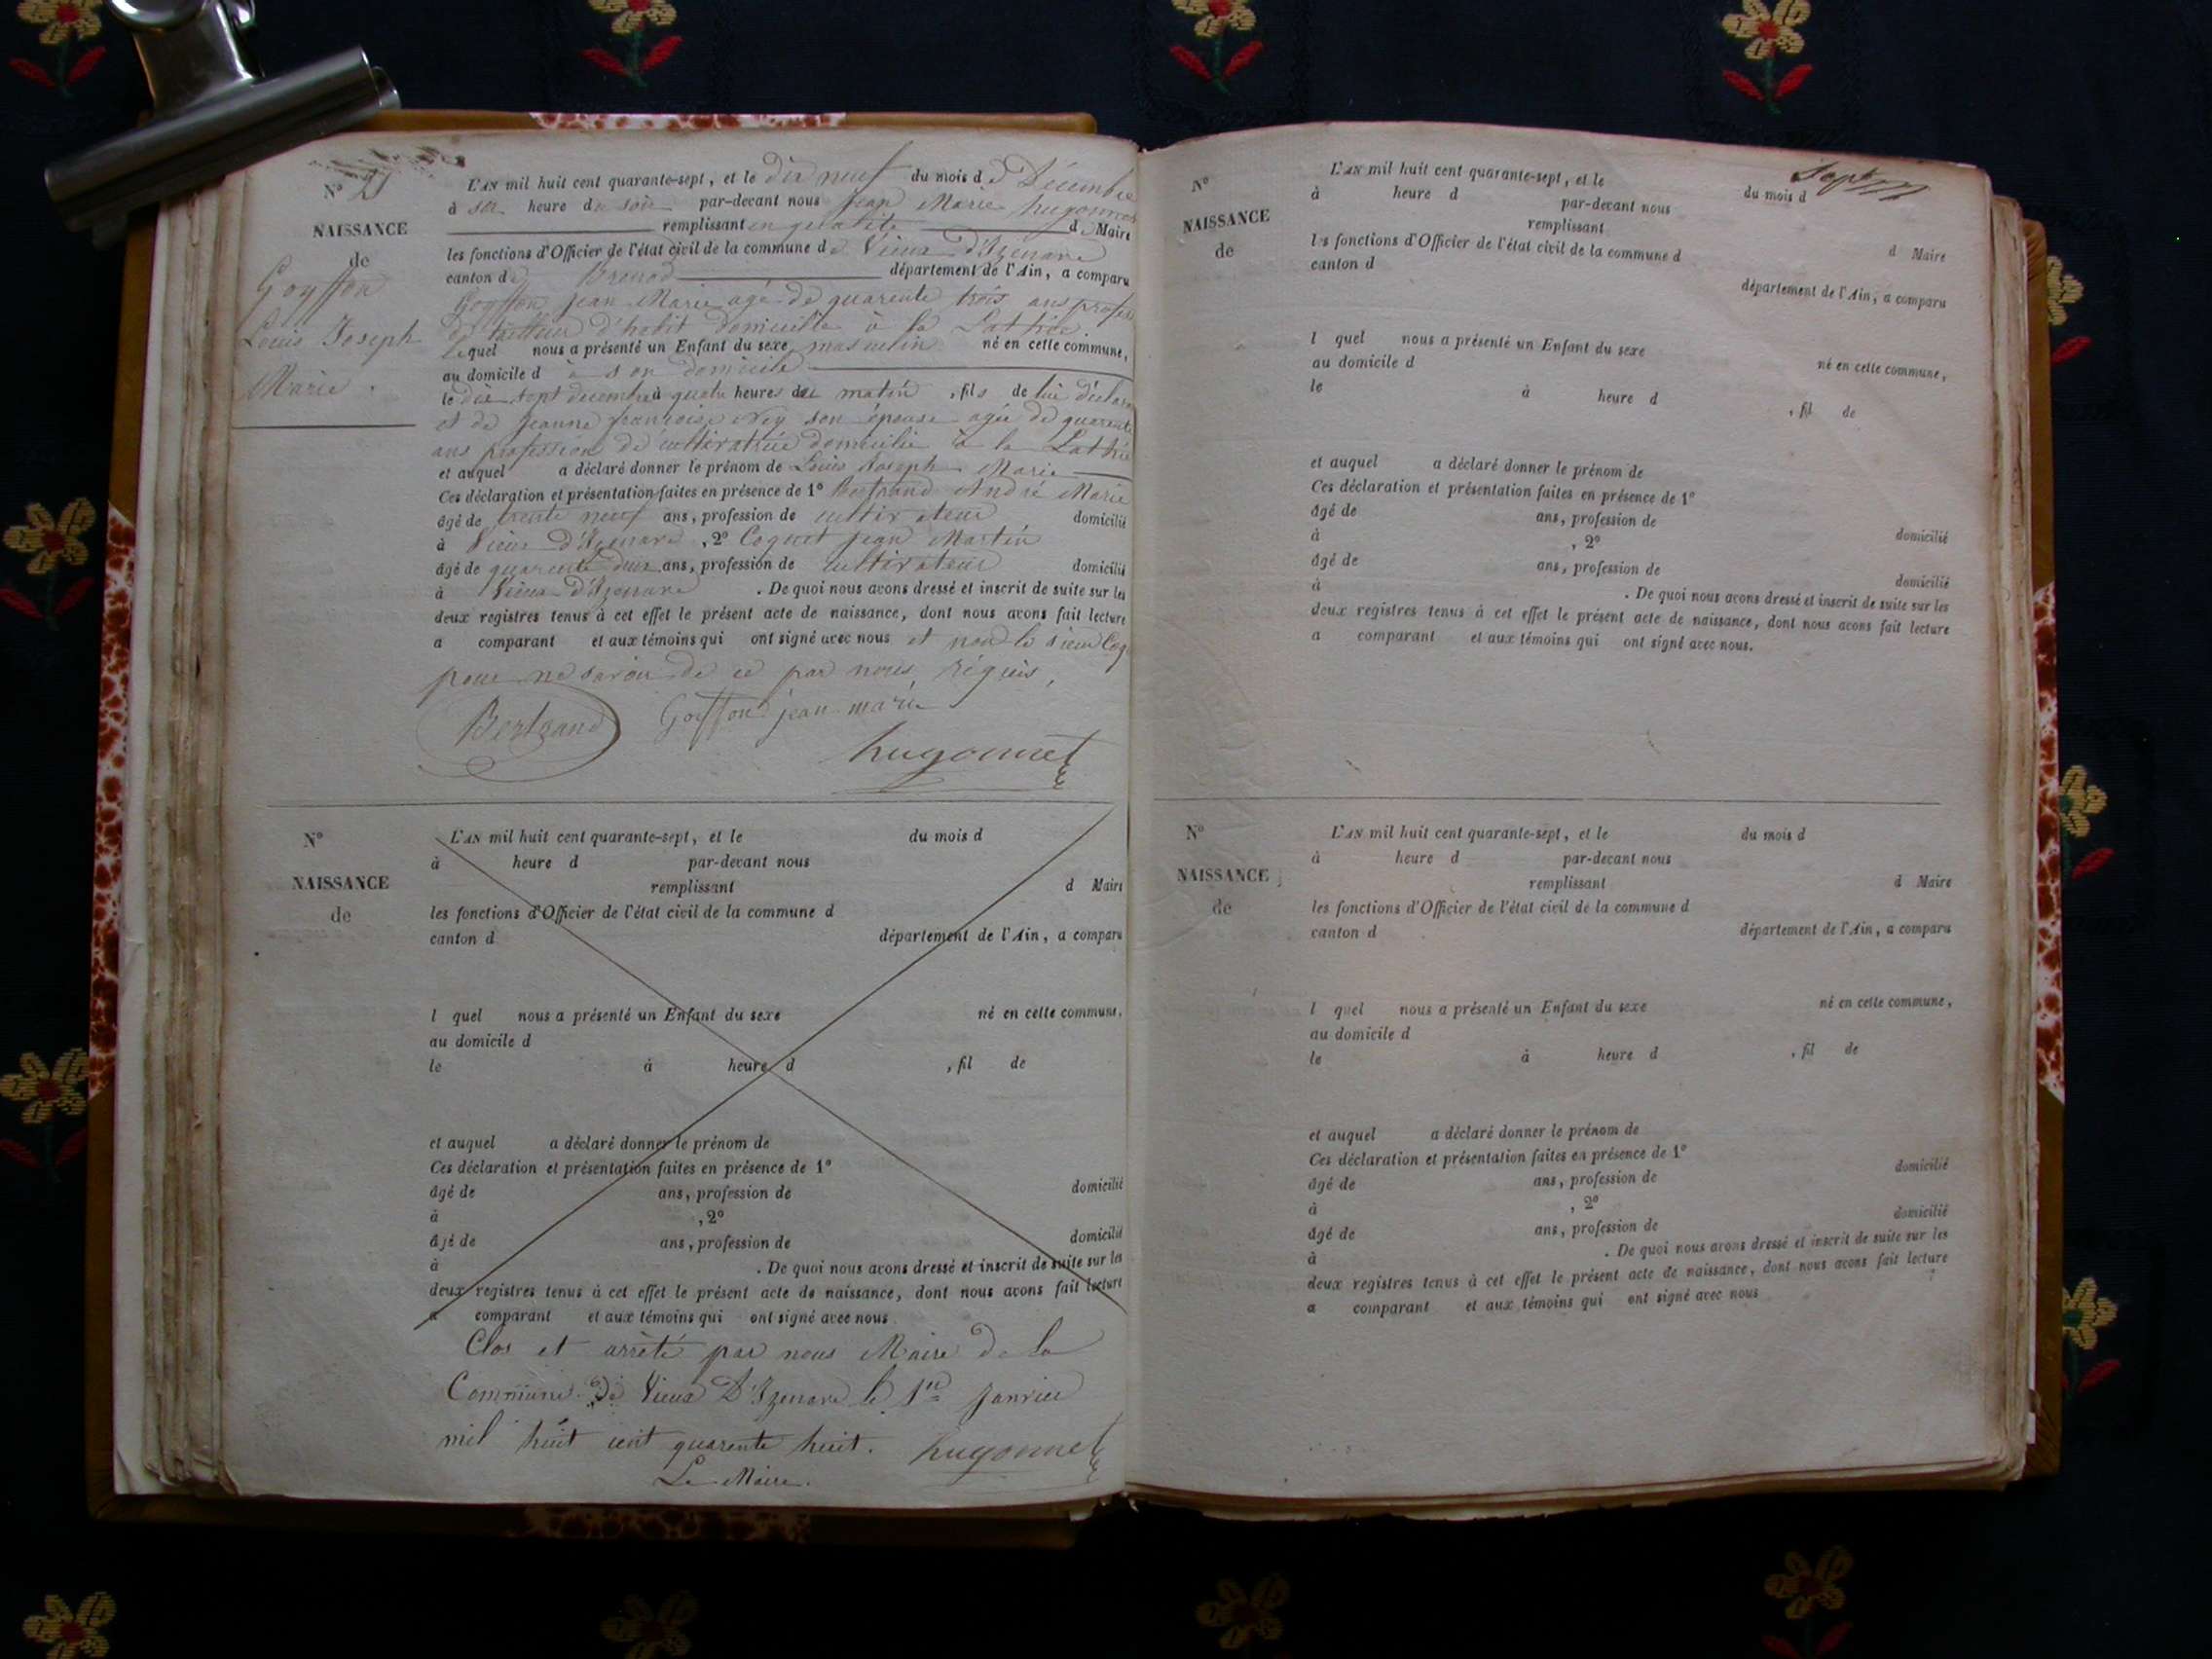 N° 21
NAISSANCE
de
Goyffon
Louis Joseph
Marie.
L'AN mil huit cent quarante-sept, et le dix neuf du mois de Décembre
à six heure du soir par-devant nous jean Marie hugonnet
remplissant en qualité de Maire
les fonctions d'Officier de l'état civil de la commune de Vieux d'Izenave
canton de Brenod département de l'Ain, a comparu
Goyffon jean Marie agé de quarente trois ans profess
de tailleur d'habit domicilié à la
Lequel nous a présenté un Enfant du sexe masculin né en cette commune,
au domicile d à son domicile
le dix sept decembre à quatre heures du matin, fils de lui déclarant
et de jeanne françoise Ney son épouse agée de quarente
ans profession de cultivatrice domicilié à la
et auquel a déclaré donner le prénom de Louis Joseph Marie
Ces déclaration et présentation faites en présence de 1° Bertrand André Marie
âgé de trente neuf ans, profession de cultivateur domicilié
à Vieux d'Izenave, 2° Coquet jean Martin
âgé de quarente deux ans, profession de cultivateur domicilié
à Vieux d'Izenave. De quoi nous avons dressé et inscrit de suite sur les
deux registres tenus à cet effet le présent acte de naissance, dont nous avons fait lecture
a comparant et aux témoins qui ont signé avec nous et non le sieur Coq
pour ne savoir de ce par nous réquis,
Bertrand Goiffon jean marie
hugonnet
N°
NAISSANCE
de
L'AN mil huit cent quarante-sept, et le du mois d
à heure d par-devant nous
remplissant d Maire
les fonctions d'Officier de l'état civil de la commune d
canton d département de l'Ain, a comparu
l quel nous a présenté un Enfant du sexe né en cette commune,
au domicile d
le à heure d , fil de
et auquel a déclaré donner le prénom de
Ces déclaration et présentation faites en présence de 1°
âgé de ans, profession de domicilié
à , 2°
âgé de ans, profession de domicilié
à . De quoi nous avons dressé et inscrit de suite sur les
deux registres tenus à cet effet le présent acte de naissance, dont nous avons fait lecture
a comparant et aux témoins qui ont signé avec nous
Clos et arrêté par nous Maire de la
Commune de Vieux D'Izenave le 1er janvier
mil huit cent quarente huit. hugonnet
Le Maire.
Sept
N°
NAISSANCE
de
L'AN mil huit cent quarante-sept, et le du mois d
à heure d par-devant nous
remplissant d Maire
les fonctions d'Officier de l'état civil de la commune d
canton d département de l'Ain, a comparu
l quel nous a présenté un Enfant du sexe né en cette commune,
au domicile d
le à heure d , fil de
et auquel a déclaré donner le prénom de
Ces déclaration et présentation faites en présence de 1°
âgé de ans, profession de domicilié
à , 2°
âgé de ans, profession de domicilié
à . De quoi nous avons dressé et inscrit de suite sur les
deux registres tenus à cet effet le présent acte de naissance, dont nous avons fait lecture
a comparant et aux témoins qui ont signé avec nous.
N°
NAISSANCE
de
L'AN mil huit cent quarante-sept, et le du mois d
à heure d par-devant nous
remplissant d Maire
les fonctions d'Officier de l'état civil de la commune d
canton d département de l'Ain, a comparu
l quel nous a présenté un Enfant du sexe né en cette commune,
au domicile d
le à heure d , fil de
et auquel a déclaré donner le prénom de
Ces déclaration et présentation faites en présence de 1°
âgé de ans, profession de domicilié
à , 2°
âgé de ans, profession de domicilié
à . De quoi nous avons dressé et inscrit de suite sur les
deux registres tenus à cet effet le présent acte de naissance, dont nous avons fait lecture
a comparant et aux témoins qui ont signé avec nous